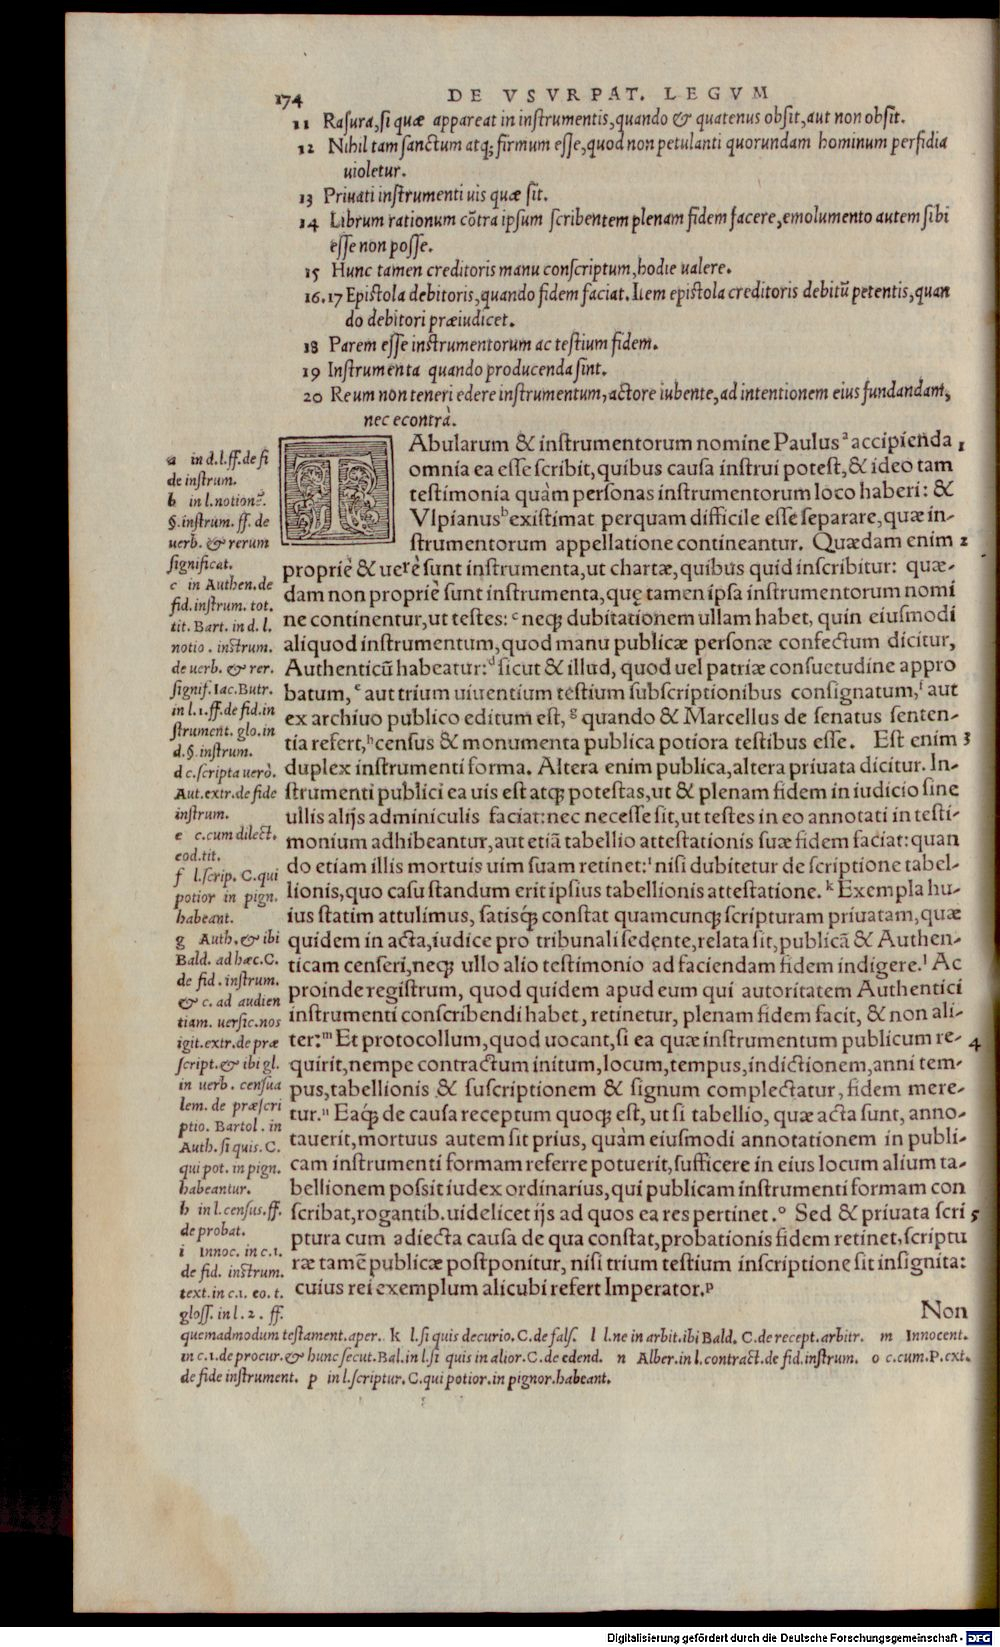 174 DE VSVRPAT. LEGVM
11 Rasura, si quæ appareat in instrumentis, quando & quatenus obsit, aut non obsit.
12 Nihil tam sanctum atq; firmum esse, quod non petulanti quorundam hominum perfidia
uioletur.
13 Priuati instrumenti uis quæ sit.
14 Librum rationum cõtra ipsum scribentem plenam fidem facere, emolumento autem sibi
esse non posse.
15 Hunc tamen creditoris manu conscriptum, hodie ualere.
16.17 Epistola debitoris, quando fidem faciat. Item epistola creditoris debitũ petentis, quan
do debitori præiudicet.
18 Parem esse instrumentorum ac testium fidem.
19 Instrumenta quando producenda sint.
20 Reum non teneri edere instrumentum, actore iubente, ad intentionem eius fundandam,
nec econtrà.
TAbularum & instrumentorum nomine Paulus a accipienda 1
omnia ea esse scribit, quibus causa instrui potest, & ideo tam
testimonia quàm personas instrumentorum loco haberi: &
Vlpianus b existimat perquam difficile esse separare, quæ in-
strumentorum appellatione contineantur. Quædam enim 2
propriè & uerè sunt instrumenta, ut chartæ, quibus quid inscribitur: quæ-
dam non propriè sunt instrumenta, quę tamen ipsa instrumentorum nomi
ne continentur, ut testes: c neq; dubitationem ullam habet, quin eiusmodi
aliquod instrumentum, quod manu publicæ personæ confectum dicitur,
Authenticũ habeatur: d sicut & illud, quod uel patriæ consuetudine appro
batum, e aut trium uiuentium testium subscriptionibus consignatum, f aut
ex archiuo publico editum est, g quando & Marcellus de senatus senten-
tia refert, h census & monumenta publica potiora testibus esse. Est enim 3
duplex instrumenti forma. Altera enim publica, altera priuata dicitur. In-
strumenti publici ea uis est atq; potestas, ut & plenam fidem in iudicio sine
ullis alijs adminiculis faciat: nec necesse sit, ut testes in eo annotati in testi-
monium adhibeantur, aut etiã tabellio attestationis suæ fidem faciat: quan
do etiam illis mortuis uim suam retinet: i nisi dubitetur de scriptione tabel-
lionis, quo casu standum erit ipsius tabellionis attestatione. k Exempla hu-
ius statim attulimus, satisq; constat quamcunq; scripturam priuatam, quæ
quidem in acta, iudice pro tribunali sedente, relata sit, publicã & Authen-
ticam censeri, neq; ullo alio testimonio ad faciendam fidem indigere. l Ac
proinde registrum, quod quidem apud eum qui autoritatem Authentici
instrumenti conscribendi habet, retinetur, plenam fidem facit, & non ali-
ter: m Et protocollum, quod uocant, si ea quæ instrumentum publicum re- 4
quirit, nempe contractum initum, locum, tempus, indictionem, anni tem-
pus, tabellionis & suscriptionem & signum complectatur, fidem mere-
tur. n Eaq; de causa receptum quoq; est, ut si tabellio, quæ acta sunt, anno-
tauerit, mortuus autem sit prius, quàm eiusmodi annotationem in publi-
cam instrumenti formam referre potuerit, sufficere in eius locum alium ta-
bellionem possit iudex ordinarius, qui publicam instrumenti formam con
scribat, rogantib. uidelicet ijs ad quos ea res pertinet. o Sed & priuata scri 5
ptura cum adiecta causa de qua constat, probationis fidem retinet, scriptu
ræ tamẽ publicæ postponitur, nisi trium testium inscriptione sit insignita:
cuius rei exemplum alicubi refert Imperator. p
Non
a in d. l. ff. de fi
de instrum.
b in l. notione.
§. instrum. ff. de
uerb. & rerum
significat.
c in Authen. de
fid. instrum. tot.
tit. Bart. in d. l.
notio. instrum.
de uerb. & rer.
signif. Iac. Butr.
in l. 1. ff. de fid. in
strument. glo. in
d. §. instrum.
d c. scripta uerò.
Aut. extr. de fide
instrum.
e c. cum dilect.
eod. tit.
f l. scrip. C. qui
potior in pign.
habeant.
g Auth. & ibi
Bald. ad hæc. C.
de fid. instrum.
& c. ad audien
tiam. uersic. nos
igit. extr. de præ
script. & ibi gl.
in uerb. censua
lem. de præscri
ptio. Bartol. in
Auth. si quis. C.
qui pot. in pign.
habeantur.
h in l. census. ff.
de probat.
i Innoc. in c. 1.
de fid. instrum.
text. in c. 1. eo. t.
gloss. in l. 2. ff.
quemadmodum testament. aper. k l. si quis decurio. C. de fals. l l. ne in arbit. ibi Bald. C. de recept. arbitr. m Innocent.
in c. 1. de procur. & hunc secut. Bal. in l. si quis in alior. C. de edend. n Alber. in l. contract. de fid. instrum. o c. cum. P. ext.
de fide instrument. p in l. scriptur. C. qui potior. in pignor. habeant.
Digitalisierung gefördert durch die Deutsche Forschungsgemeinschaft - DFG